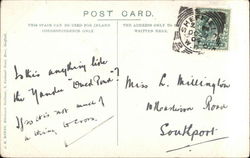 POST CARD.
THIS SPACE MAY BE USED FOR INLAND
CORRESPONDENCE ONLY
THE ADDRESS ONLY TO BE
WRITTEN HERE.
Is this anything like
the "Duck Pond"?
If so it is not much of
a thing to cross.
Miss L. Millington
Road
Southport